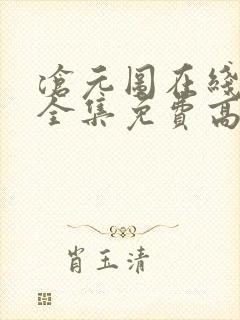 沧元图在线
全集免费高
肖玉清